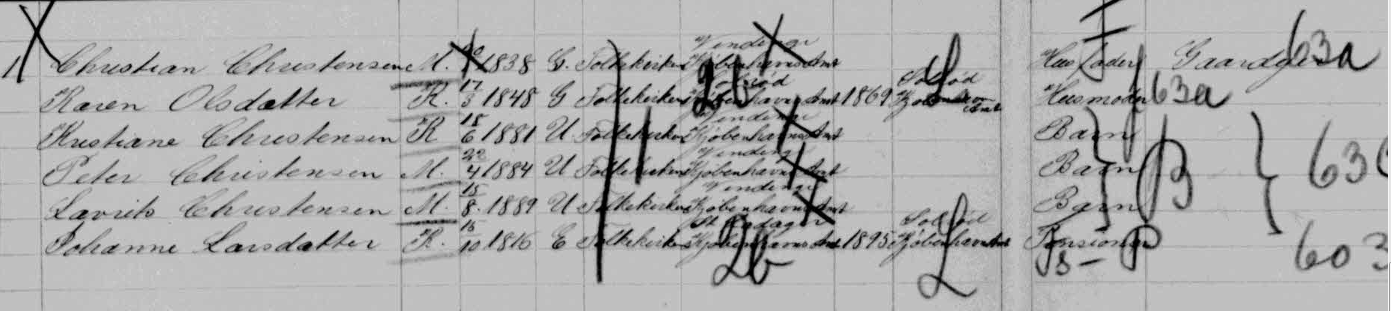 1 Christian Christensen M. 1838 G. Folkekirken Vindinge Københavns Amt Husfader Gaardejer 63a
Karen Olsdatter K. 17/5 1848 G Folkekirken Københavns Amt 1869 Solrød Københavns Amt Husmoder 63a
Kristiane Christensen K 15/6 1881 U Folkekirken Vindinge Københavns Amt Barn
Peter Christensen M. 22/4 1884 U Folkekirken Vindinge Københavns Amt Barn B 63
Lavrits Christensen M. 15/8 1889 U Folkekirken Vindinge Københavns Amt Barn
Johanne Larsdatter K. 16/10 1816 E Folkekirken Københavns Amt 1895 Solrød Københavns Amt 603
2b L